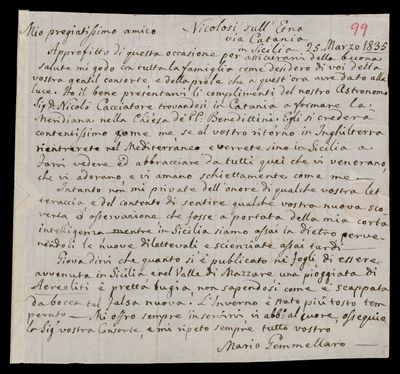 Nicolosi sull' Etna
99
Mio pregiatissimo amico
via Catania
in Sicilia 25. Marzo 1835
Approfitto di questa occasione per assicurarvi della buona
salute mi godo co tutta la famiglia come desidero di voi della
vostra gentil consorte, e della prole che a quest' ora avete dato alla
luce. Ho il bene presentarvi li complimenti del nostro Astronomo
Sigr. Nicolò Cacciatore trovandosi in Catania a formare la
Meridiana nella Chiesa de PP. Benedittini. Egli si crederà
contentissimo come me, se al vostro ritorno in Inghilterra
rientrerete nel Mediterraneo e verrete sino in Sicilia a
farvi vedere ed abbracciare da tutti quei che vi venerano,
che vi adorano, e vi amano schiettamente come me —
Intanto non mi private dell' onore di qualche vostra let
teruccia e del contento di sentire qualche vostra nuova sco-
verta, o osservazione che fosse a portata della mia corta
intelligenza mentre in Sicilia siamo assai in dietro perve-
nendoci le nuove dilettevoli e scienziate assai tardi —
Giova dirvi che quanto si è publicato ne' fogli di essere
avvenuta in Sicilia e nel Valle di Mazzare una pioggiata di
Aereoliti è pretta bugia, non sapendosi come è scappata
da bocca tal falsa nuova. L'Inverno è stato più tosto tem
perato — Mi offro sempre in servirvi, vi abb.o al cuore, ossequio
la Sigra vostra Consorte, e mi ripeto sempre tutto vostro
Mario Gemmellaro —